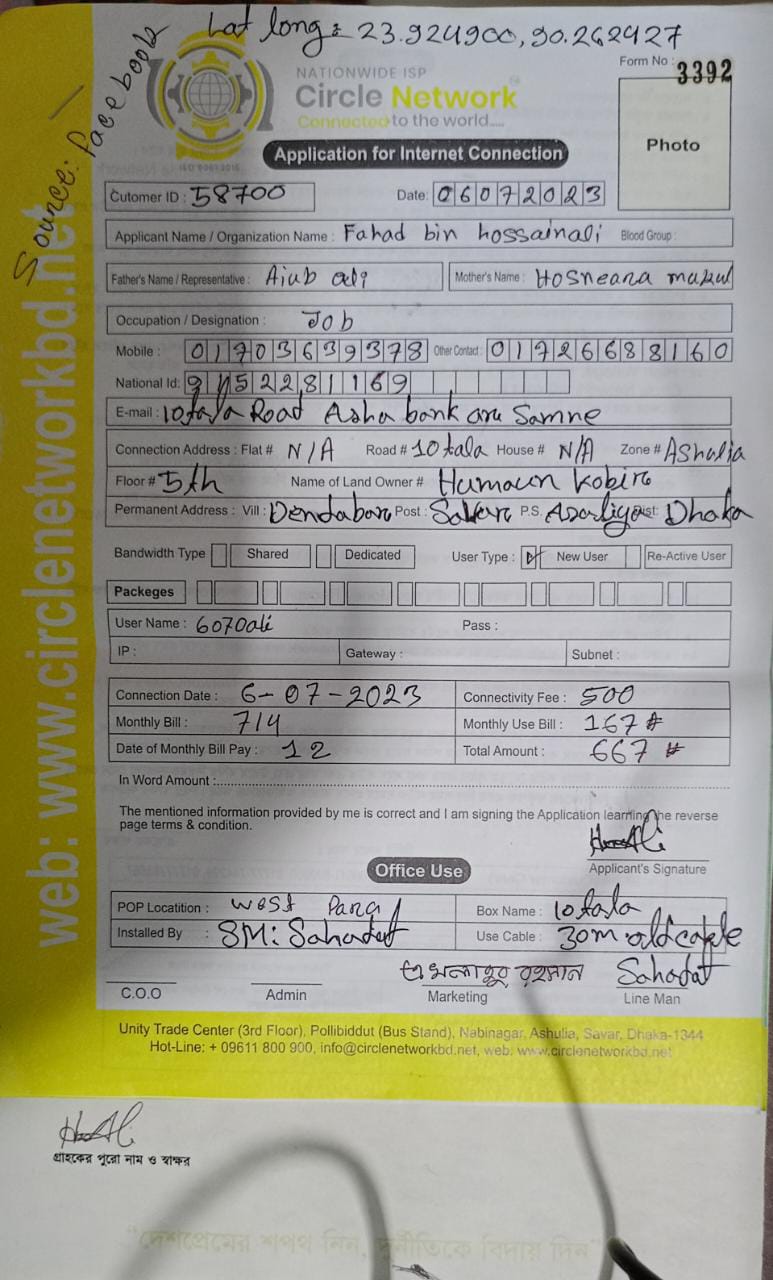 Lat long = 23.924900, 90.262927
Source: Facebook
web: www.circlenetworkbd.net
ISO 9001:2015
NATIONWIDE ISP
Circle Network
Connected to the world.....
Form No : 3392
Photo
Application for Internet Connection
Cutomer ID : 58700 Date: 06072023
Applicant Name / Organization Name : Fahad bin hossainali Blood Group :
Father's Name / Representative : Aiub ali Mother's Name : Hosneara makul
Occupation / Designation : Job
Mobile : 01703639378 Other Contact : 01726688160
National Id: 9152281169
E-mail : 10tala Road Asha bank aru Samne
Connection Address : Flat # N/A Road # 10 tala House # N/A Zone # Ashulia
Floor # 5th Name of Land Owner # Humaun Kobir
Permanent Address : Vill : Dendabar Post : Savar P.S. Dist: Dhaka
Bandwidth Type Shared Dedicated User Type : New User Re-Active User
Packeges
User Name : 6070ali Pass :
IP : Gateway : Subnet :
Connection Date : 6-07-2023 Connectivity Fee : 500
Monthly Bill : 714 Monthly Use Bill : 167 #
Date of Monthly Bill Pay : 12 Total Amount : 667 #
In Word Amount :
The mentioned information provided by me is correct and I am signing the Application learning the reverse
page terms & condition.
Applicant's Signature
Office Use
POP Locatition : West Para Box Name : 10tala
Installed By : SM: Sahadat Use Cable : 30m old cable
রহমান Sahadat
C.O.O Admin Marketing Line Man
Unity Trade Center (3rd Floor), Pollibiddut (Bus Stand), Nabinagar, Ashulia, Savar, Dhaka-1344
Hot-Line: + 09611 800 900, info@circlenetworkbd.net, web: www.circlenetworkbd.net
গ্রাহকের পুরো নাম ও স্বাক্ষর
“দেশপ্রেমের শপথ নিন, দুর্নীতিকে বিদায় দিন”